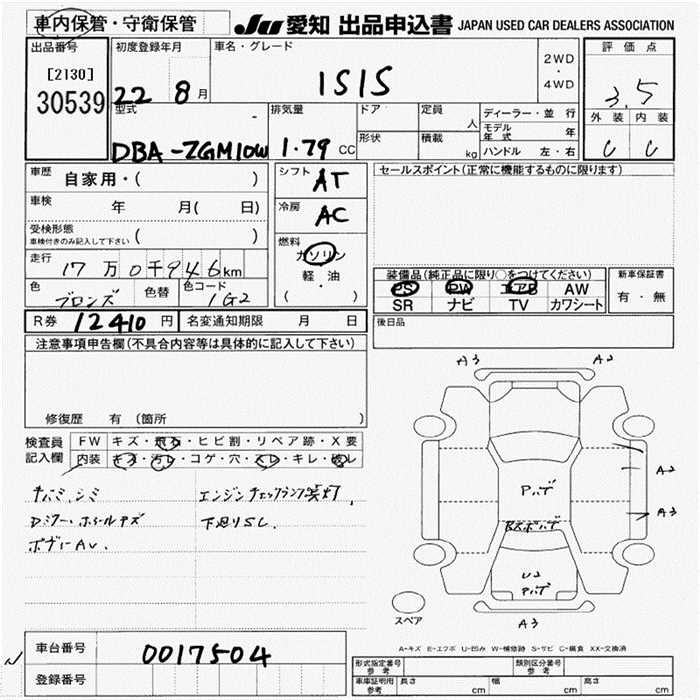 車内保管・守衛保管
JU 愛知 出品申込書 JAPAN USED CAR DEALERS ASSOCIATION
出品番号
[2130]
30539
初度登録年月
22 8月
車名・グレード
ISIS
2WD
・
4WD
評価点
3.5
外装 内装
C C
型式
DBA-ZGM10W
排気量
1.79 CC
ドア
形状
定員
人
積載
kg
ディーラー・並行
モデル年式 年
ハンドル 左・右
車歴 自家用・( )
車検 年 月( 日)
受検形態
車検付きのみ記入して下さい ( )
走行 17万0千946km
色 ブロンズ 色替 色コード 1G2
シフト AT
冷房 AC
燃料
ガソリン
軽・油
( )
セールスポイント(正常に機能するものに限ります)
装備品(純正品に限り○をつけてください)
PS PW エアB AW
SR ナビ TV カワシート
新車保証書
有・無
後日品
R券 12410円 名変通知期限 月 日
注意事項申告欄(不具合内容等は具体的に記入して下さい)
修復歴 有 (箇所 )
検査員記入欄
FW キズ・飛石・ヒビ割・リペア跡・X要
内装 キズ・汚レ・コゲ・穴・スレ・キレ・破レ
キバミ シミ
エンジンチェックランプ点灯
下廻りSし
A3 A2
A2
A3
Pハゲ
U2
A3
スペア
A-キズ E-エクボ U-凹み W-補修跡 S-サビ C-腐食 XX-交換済
車台番号 0017504
登録番号
形式指定番号 参考
類別区分番号 参考
車庫証明用 参考 長さ cm 幅 cm 高さ cm